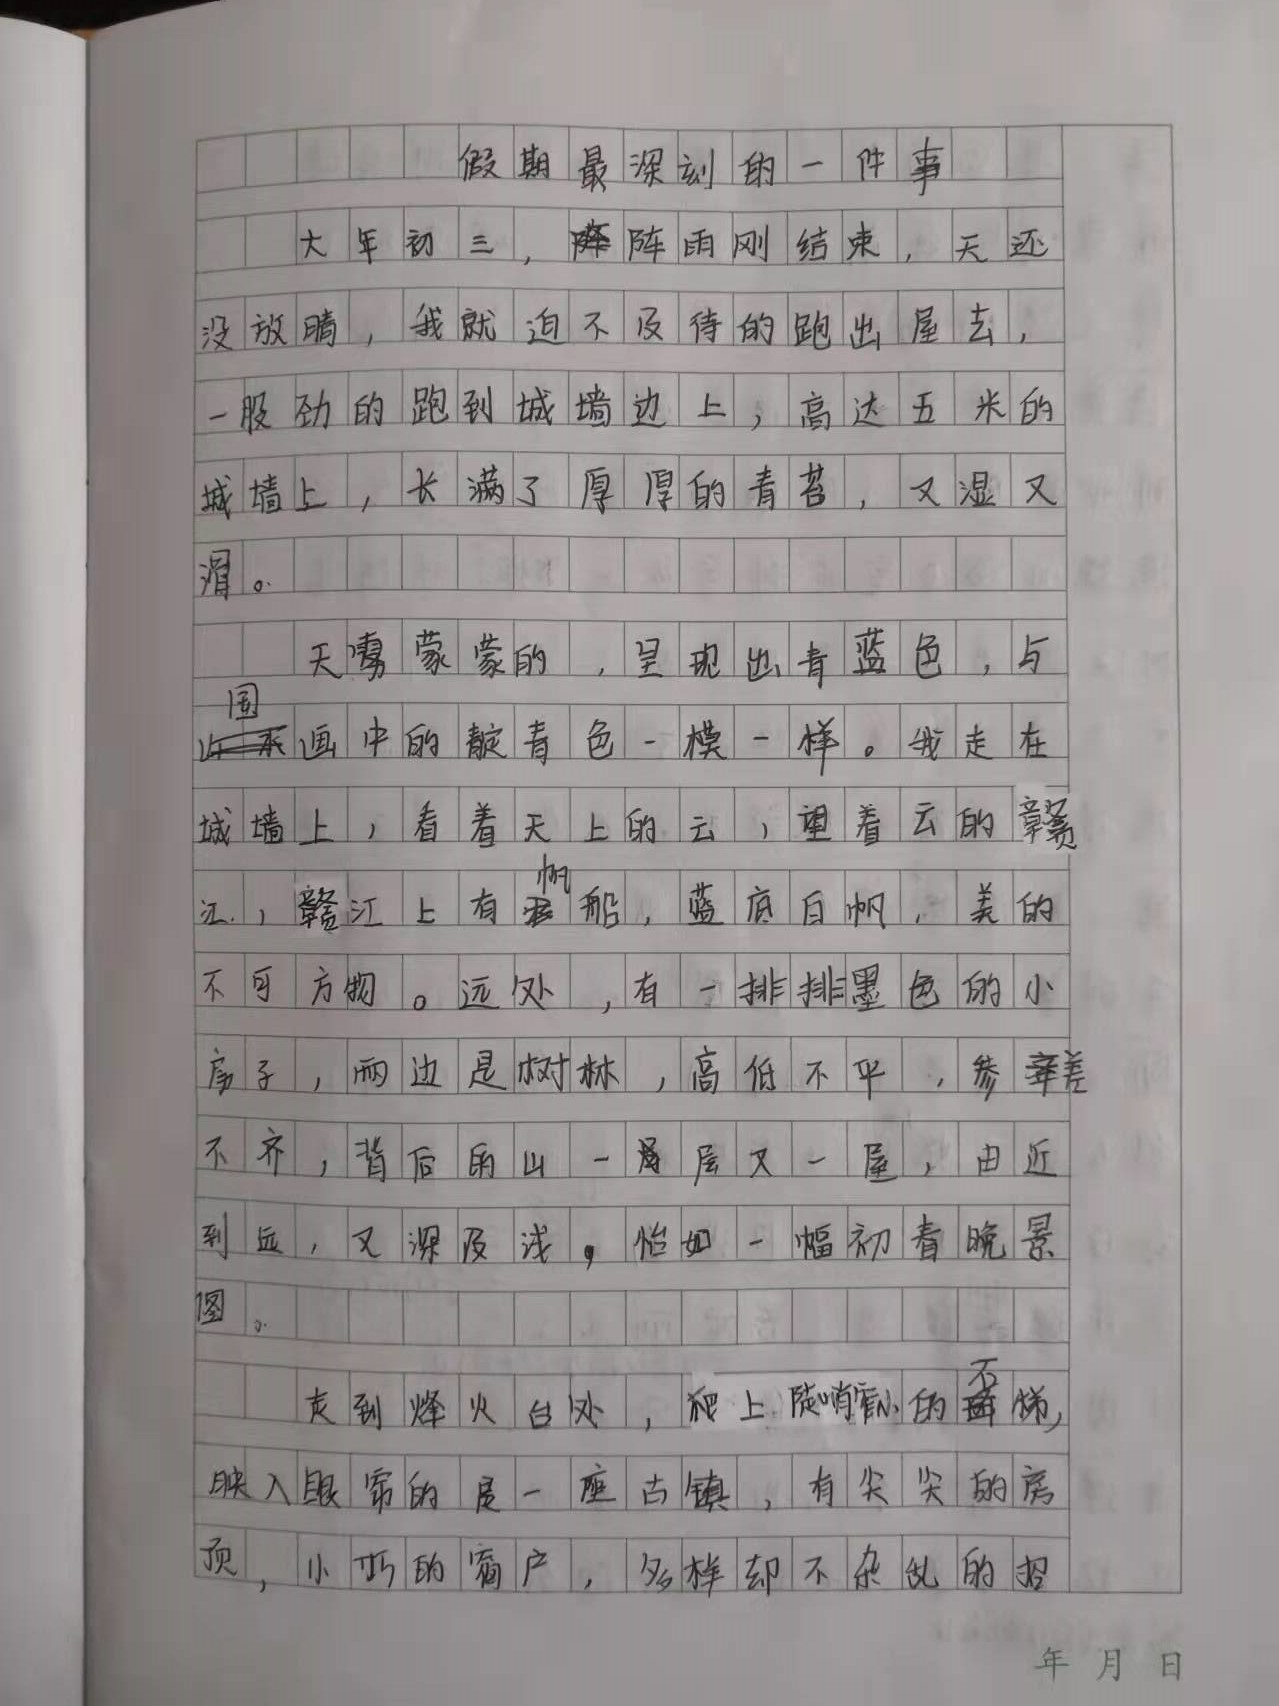 假期最深刻的一件事
大年初三，阵雨刚结束，天还
没放晴，我就迫不及待的跑出屋去，
一股劲的跑到城墙边上，高达五米的
城墙上，长满了厚厚的青苔，又湿又
滑。
天雾蒙蒙的，呈现出青蓝色，与
国画中的靛青色一模一样。我走在
城墙上，看着天上的云，望着云的赣
江，赣江上有帆船，蓝底白帆，美的
不可方物。远处，有一排排墨色的小
房子，两边是树林，高低不平，参差
不齐，背后的山一层又一层，由近
到远，又深及浅，恰如一幅初春晚景
图。
走到烽火台处，爬上陡峭窄小的石梯，
映入眼帘的是一座古镇，有尖尖的房
顶，小巧的窗户，多样却不杂乱的招
年 月 日